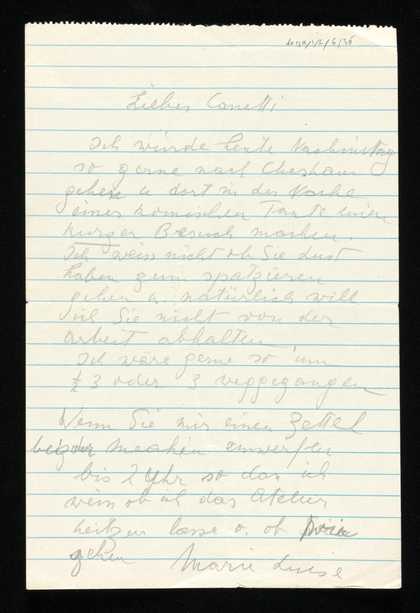 Lieber Canetti
Ich würde heute Nachmittag
so gerne nach Chesham
gehen u dort in der Nähe
einer komischen Tante einen
kurzen Besuch machen.
Ich weiss nicht ob Sie Lust
haben zum spatzieren
gehen u. natürlich will
ich Sie nicht von der
Arbeit abhalten
Ich wäre gerne so um
½ 3 oder 3 weggegangen
Wenn Sie mir einen Zettel
bei der einwerfen
bis 2 Uhr so das ich
weis ob ich das Atelier
heitzen lasse o. ob wir
gehen Marie Luise